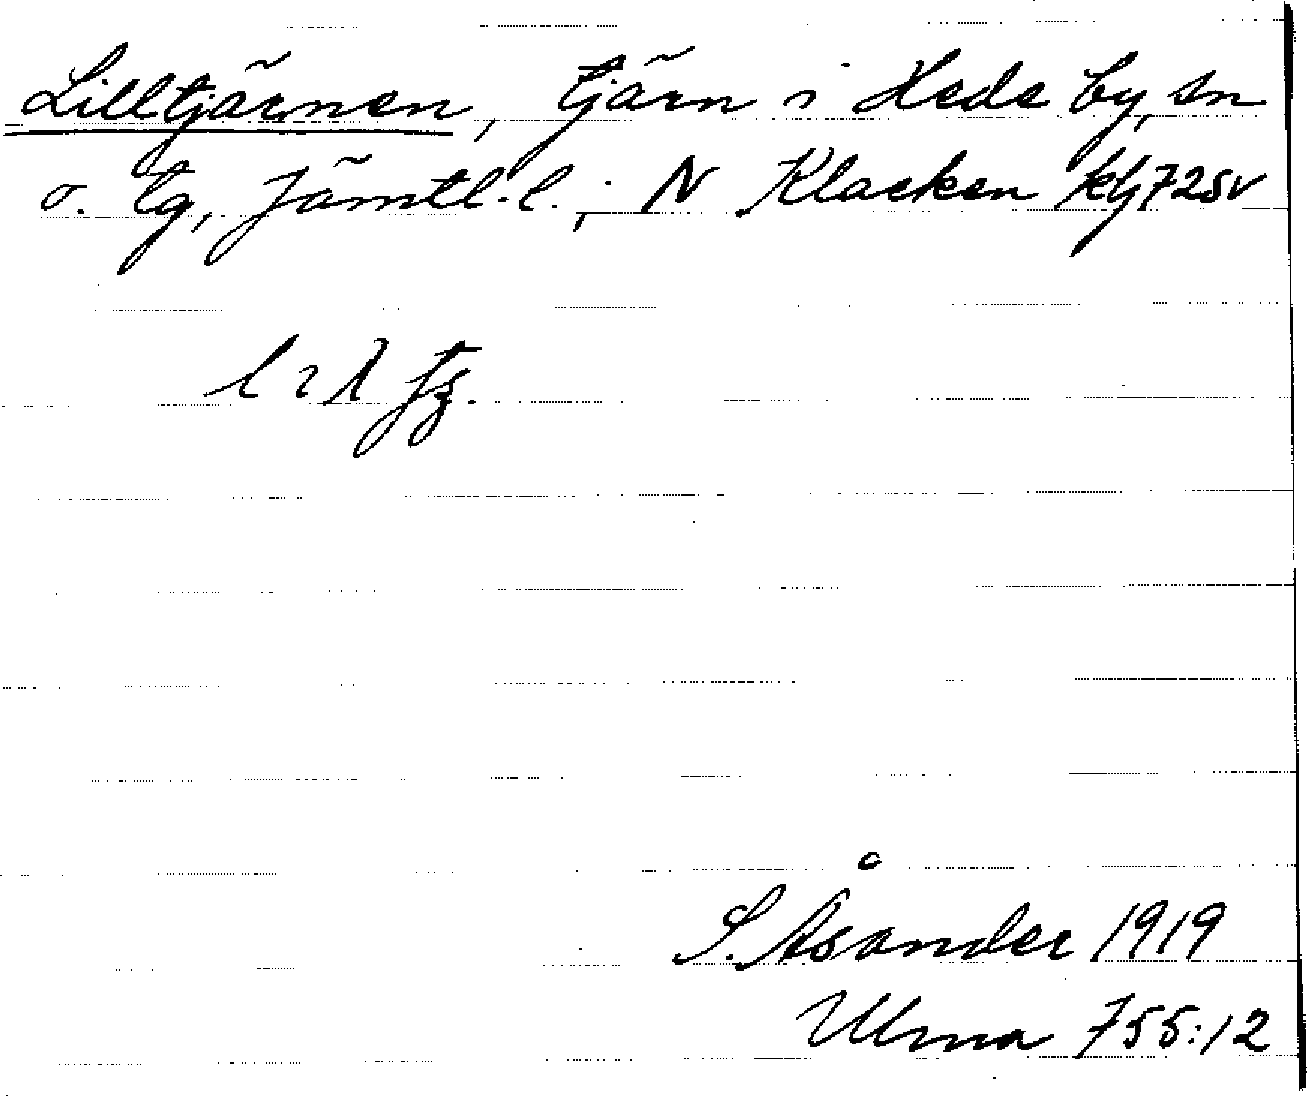 Lilltjärnen, tjärn i Hede by, sn
o. tg, Jämtl. l., N Klacken Kbl 72SV
S. Åsander 1919
Ulma 755:12